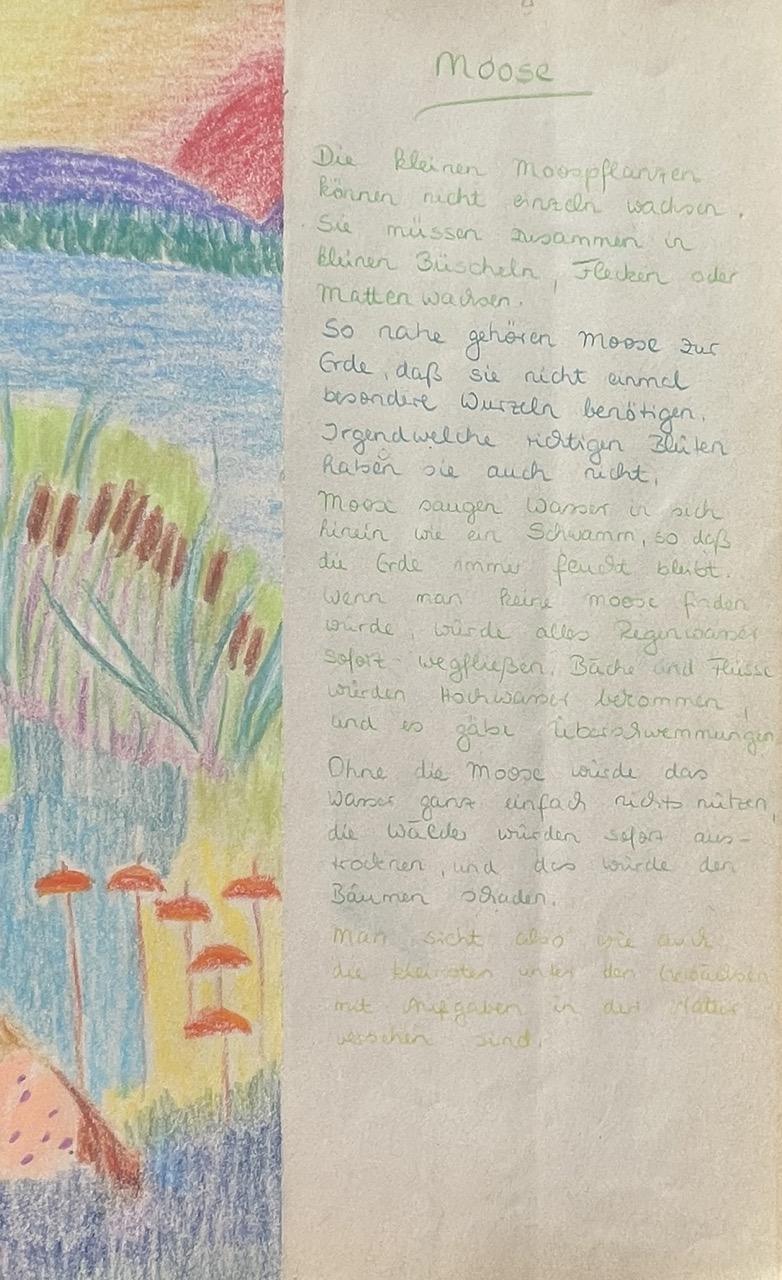 Moose
Die kleinen Moospflanzen
können nicht einzeln wachsen.
Sie müssen zusammen in
kleinen Büscheln, Flecken oder
Matten wachsen.
So nahe gehören Moose zur
Erde, daß sie nicht einmal
besondere Wurzeln benötigen.
Irgendwelche richtigen Blüten
haben sie auch nicht.
Moose saugen Wasser in sich
hinein wie ein Schwamm, so daß
die Erde immer feucht bleibt.
Wenn man keine Moose finden
würde, würde alles Regenwasser
sofort wegfließen. Bäche und Flüsse
würden Hochwasser bekommen,
und es gäbe Überschwemmungen
Ohne die Moose würde das
Wasser ganz einfach nichts nützen,
die Wälder würden sofort aus-
trocknen, und das würde den
Bäumen schaden.
Man sieht also wie auch
die kleinsten unter den Gewächsen
mit Aufgaben in der Natur
versehen sind.